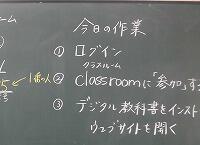 今日の作業
① ログイン
クラスルーム
② classroomに「参加」す
③ デジタル教科書をインスト
ウェブサイトを開く
ーム
1番の人
5